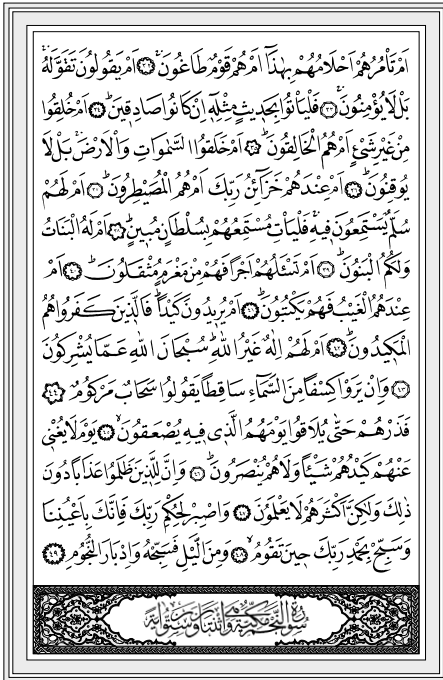 اَمْ تَأْمُرُهُمْ اَحْلَامُهُمْ بِهٰذَٓا اَمْ هُمْ قَوْمٌ طَاغُونَۚ ﴿٣٢﴾ اَمْ يَقُولُونَ تَقَوَّلَهُۚ
بَلْ لَا يُؤْمِنُونَۚ ﴿٣٣﴾ فَلْيَأْتُوا بِحَدِيثٍ مِثْلِهٖٓ اِنْ كَانُوا صَادِقِينَۜ ﴿٣٤﴾ اَمْ خُلِقُوا
مِنْ غَيْرِ شَيْءٍ اَمْ هُمُ الْخَالِقُونَۜ ﴿٣٥﴾ اَمْ خَلَقُوا السَّمٰوَاتِ وَالْاَرْضَۚ بَلْ لَا
يُوقِنُونَۜ ﴿٣٦﴾ اَمْ عِنْدَهُمْ خَزَٓائِنُ رَبِّكَ اَمْ هُمُ الْمُصَۜيْطِرُونَۜ ﴿٣٧﴾ اَمْ لَهُمْ
سُلَّمٌ يَسْتَمِعُونَ فِيهِۚ فَلْيَأْتِ مُسْتَمِعُهُمْ بِسُلْطَانٍ مُبِينٍۜ ﴿٣٨﴾ اَمْ لَهُ الْبَنَاتُ
وَلَكُمُ الْبَنُونَۜ ﴿٣٩﴾ اَمْ تَسْـَٔلُهُمْ اَجْرًا فَهُمْ مِنْ مَغْرَمٍ مُثْقَلُونَۜ ﴿٤٠﴾ اَمْ
عِنْدَهُمُ الْغَيْبُ فَهُمْ يَكْتُبُونَۜ ﴿٤١﴾ اَمْ يُرِيدُونَ كَيْدًاۜ فَالَّذِينَ كَفَرُوا هُمُ
الْمَكِيدُونَۜ ﴿٤٢﴾ اَمْ لَهُمْ اِلٰهٌ غَيْرُ اللّٰهِۜ سُبْحَانَ اللّٰهِ عَمَّا يُشْرِكُونَ
﴿٤٣﴾ وَاِنْ يَرَوْا كِسْفًا مِنَ السَّمَٓاءِ سَاقِطًا يَقُولُوا سَحَابٌ مَرْكُومٌ ﴿٤٤﴾
فَذَرْهُمْ حَتّٰى يُلَاقُوا يَوْمَهُمُ الَّذِي فِيهِ يُصْعَقُونَۙ ﴿٤٥﴾ يَوْمَ لَا يُغْنِي
عَنْهُمْ كَيْدُهُمْ شَيْـًٔا وَلَا هُمْ يُنْصَرُونَۜ ﴿٤٦﴾ وَاِنَّ لِلَّذِينَ ظَلَمُوا عَذَابًا دُونَ
ذٰلِكَ وَلٰكِنَّ اَكْثَرَهُمْ لَا يَعْلَمُونَ ﴿٤٧﴾ وَاصْبِرْ لِحُكْمِ رَبِّكَ فَاِنَّكَ بِاَعْيُنِنَا
وَسَبِّحْ بِحَمْدِ رَبِّكَ حِينَ تَقُومُۙ ﴿٤٨﴾ وَمِنَ الَّيْلِ فَسَبِّحْهُ وَاِدْبَارَ النُّجُومِ ﴿٤٩﴾
سُورَةُ النَّجْمِ مَكِّيَّةٌ وَهِيَ اثْنَتَانِ وَسِتُّونَ اٰيَةً